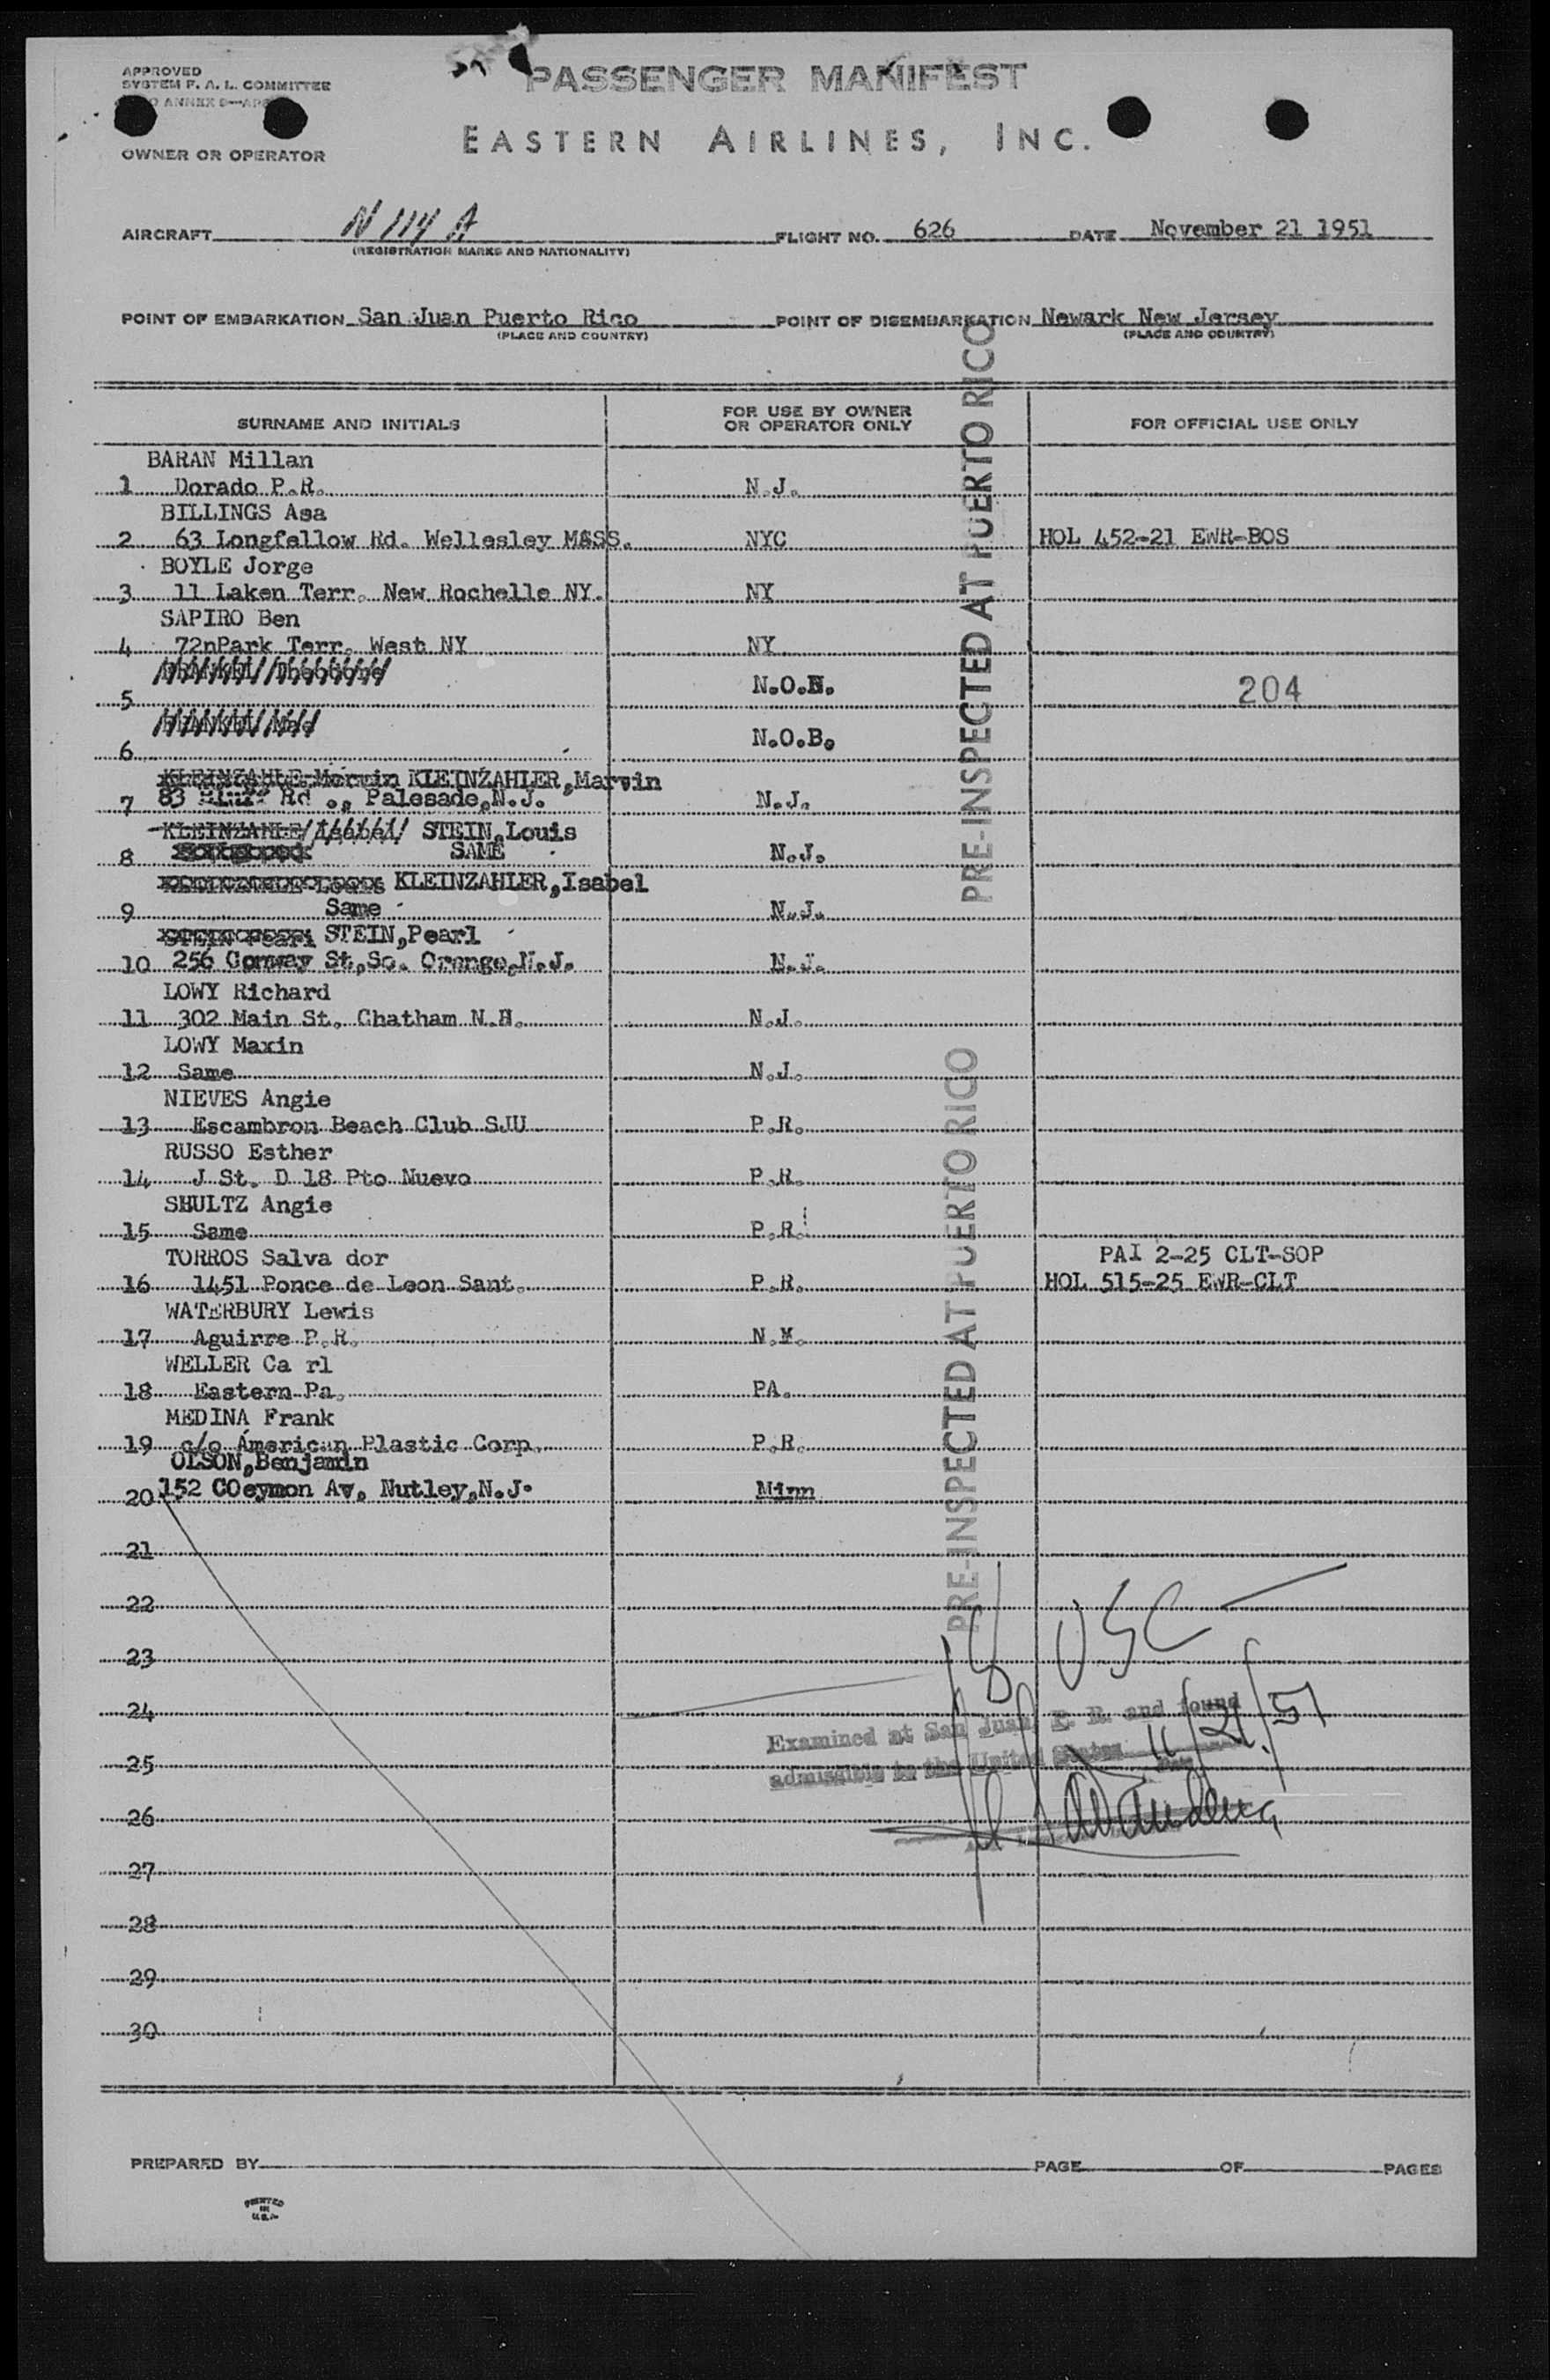 APPROVED
SYSTEM F. A. L. COMMITTEE
PASSENGER MANIFEST
EASTERN AIRLINES, INC.
OWNER OR OPERATOR
AIRCRAFT N 114 A FLIGHT NO. 626 DATE November 21 1951
(REGISTRATION MARKS AND NATIONALITY)
POINT OF EMBARKATION San Juan Puerto Rico POINT OF DISEMBARKATION Newark New Jersey
(PLACE AND COUNTRY) (PLACE AND COUNTRY)
SURNAME AND INITIALS FOR USE BY OWNER OR OPERATOR ONLY FOR OFFICIAL USE ONLY
BARAN Millan
1 Dorado P.R. N.J.
BILLINGS Asa
2 63 Longfellow Rd. Wellesley MASS. NYC HOL 452-21 EWR-BOS
BOYLE Jorge
3 11 Laken Terr. New Rochelle NY. NY
SAPIRO Ben
4 72nPark Terr. West NY NY
5 N.O.B. 204
6 N.O.B.
KLEINZAHLE Marvin KLEINZAHLER,Marvin
7 83 Rd ., Palesade,N.J. N.J.
KLEINZAHLE Isabel STEIN,Louis
8 SAME N.J.
KLEINZAHLER,Isabel
9 Same N.J.
STEIN Pearl STEIN,Pearl
10 256 Conway St,So. Orange,N.J. N.J.
LOWY Richard
11 302 Main St. Chatham N.H. N.J.
LOWY Maxin
12 Same N.J.
NIEVES Angie
13 Escambron Beach Club SJU P.R.
RUSSO Esther
14 J St. D 18 Pto Nuevo P.R.
SHULTZ Angie
15 Same P.R.
TORROS Salva dor PAI 2-25 CLT-SOP
16 1451 Ponce de Leon Sant. P.R. HOL 515-25 EWR-CLT
WATERBURY Lewis
17 Aguirre P.R. N.Y.
WELLER Ca rl
18 Eastern Pa. PA.
MEDINA Frank
19 c/o American Plastic Corp. P.R.
OLSON,Benjamin
20 152 COeymon Av. Nutley,N.J. Minn
21
22
23
24
25
26
27
28
29
30
PRE-INSPECTED AT PUERTO RICO
PRE-INSPECTED AT PUERTO RICO
18 USC
Examined at San Juan, P. R. and found
admissible to the United States 11/21/51
PREPARED BY PAGE OF PAGES
PRINTED
IN
U.S.A.